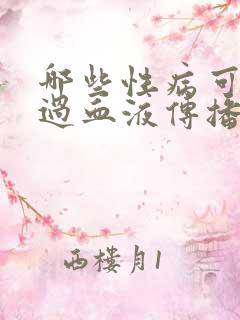 哪些性病可
过血液传播
西楼月1